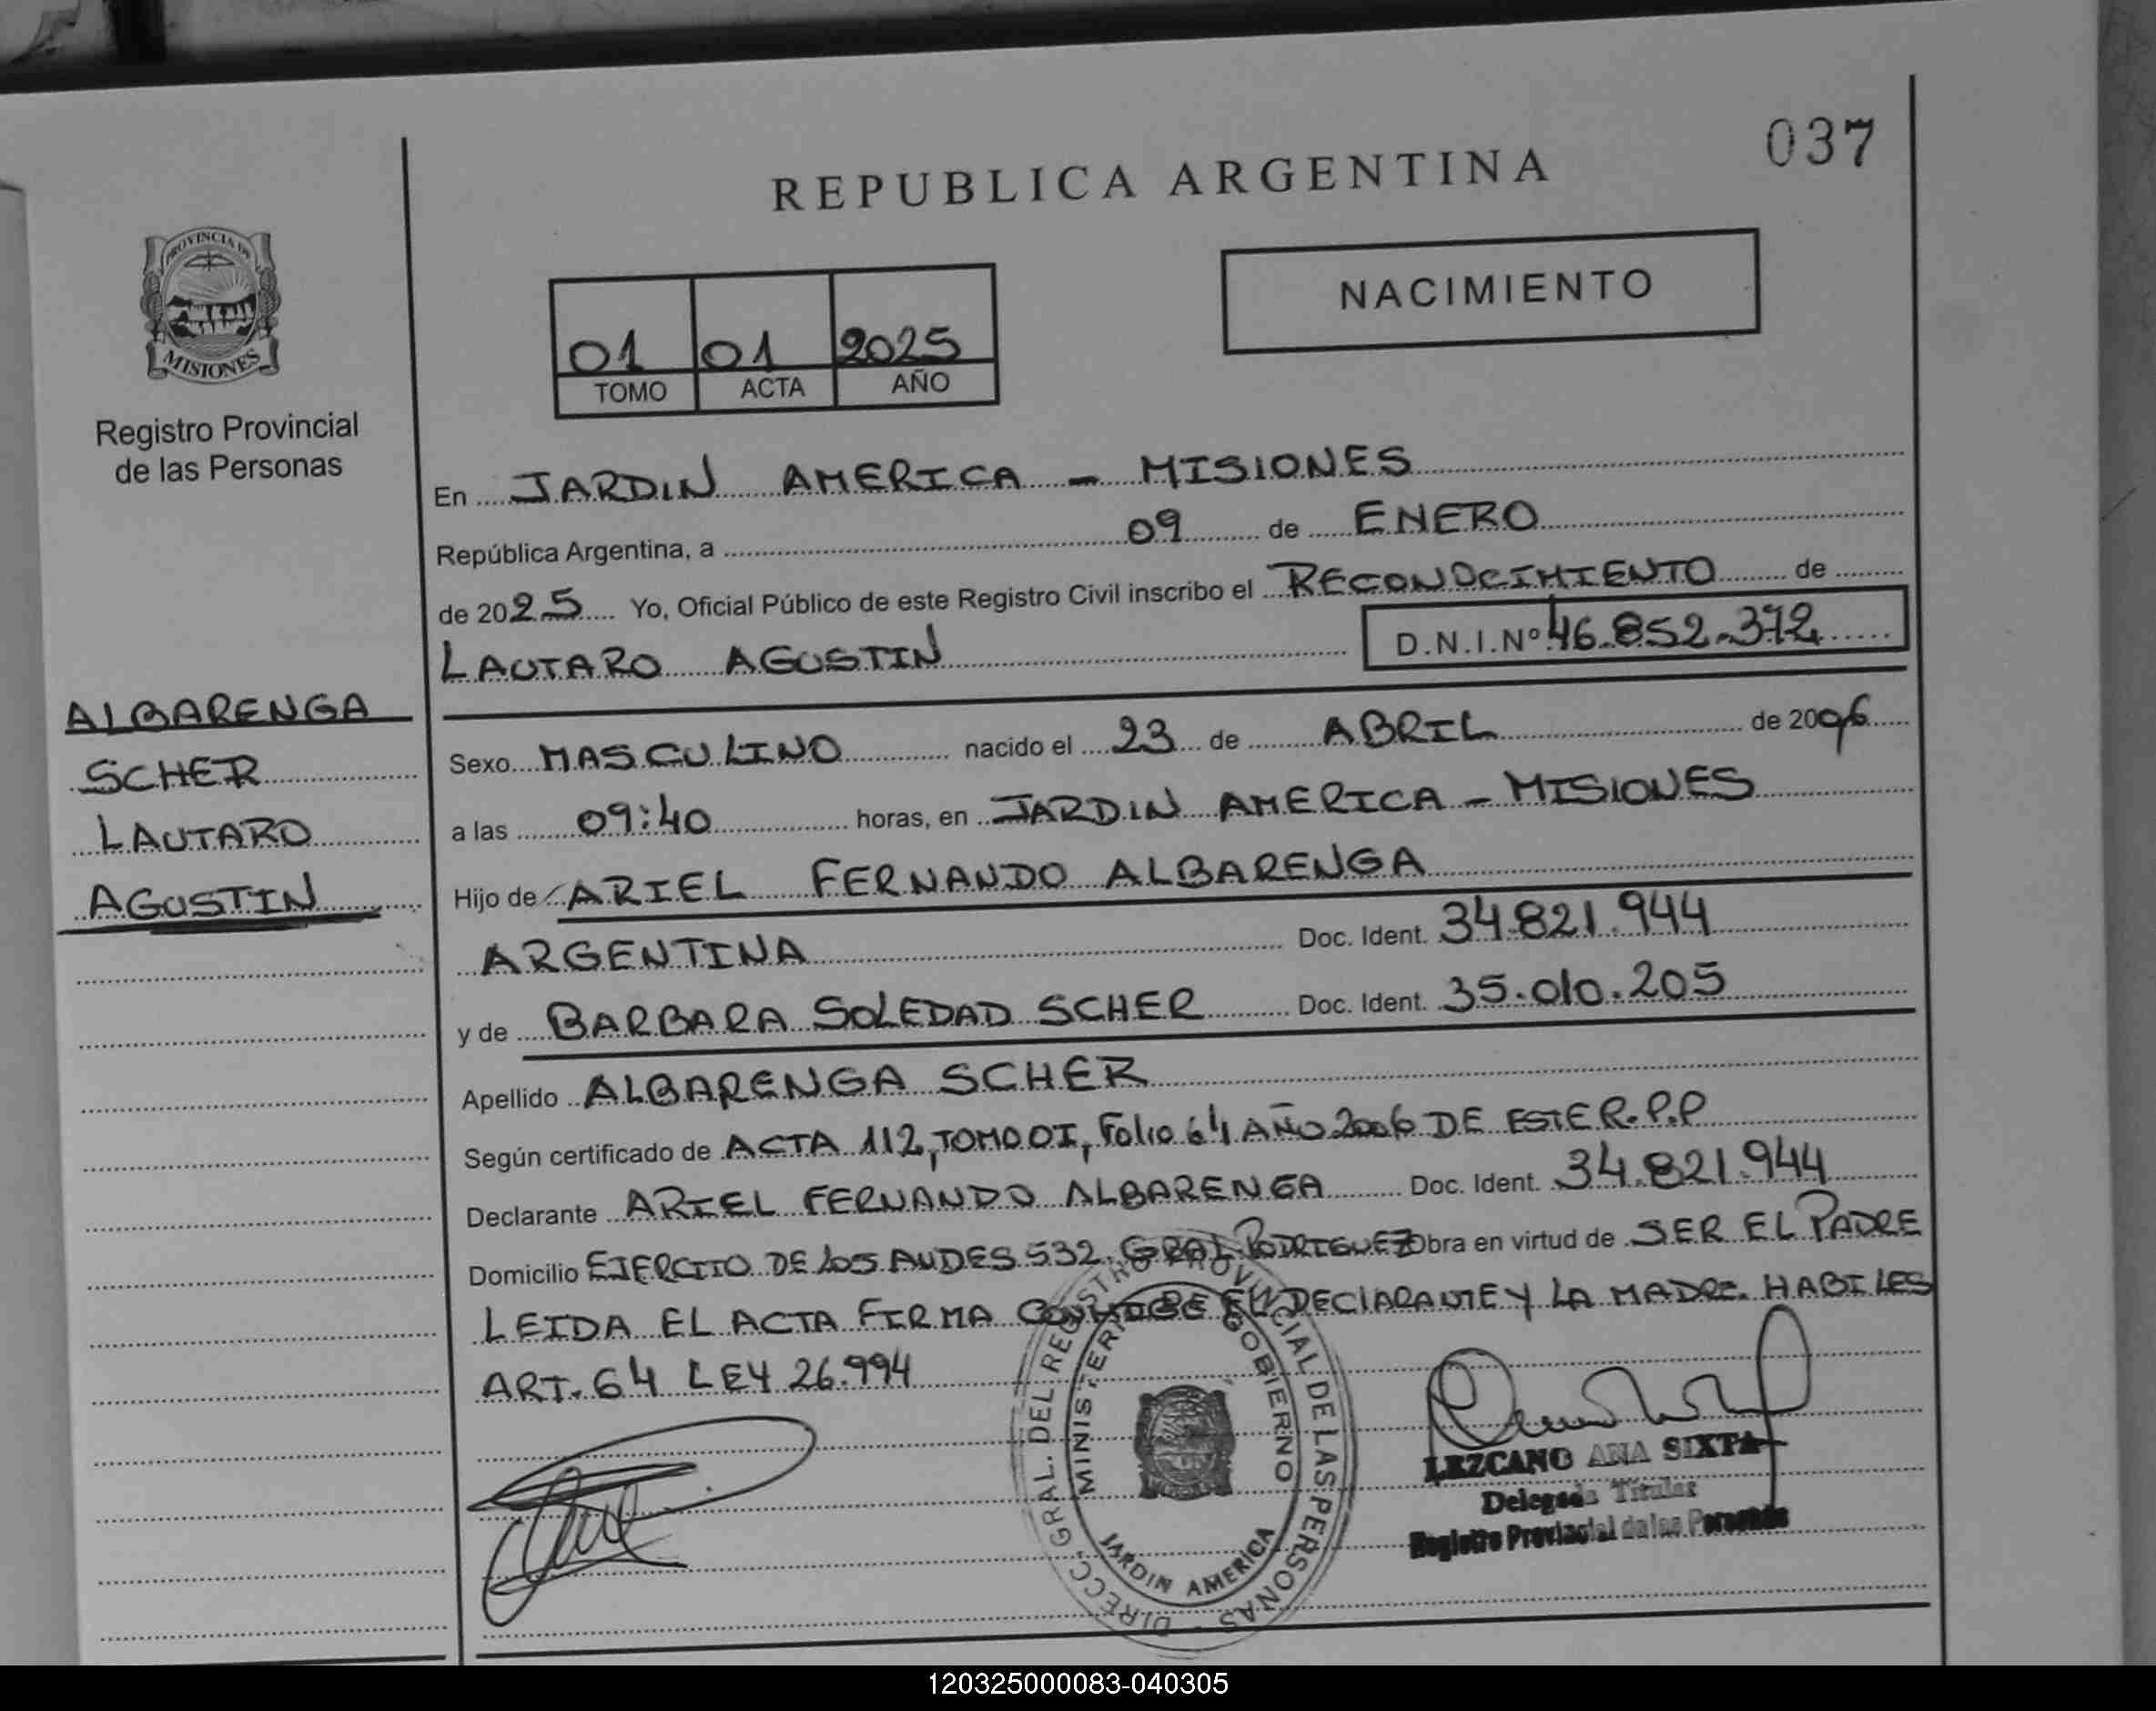 037
REPUBLICA ARGENTINA
PROVINCIA DE
MISIONES
NACIMIENTO
01 01 2025
TOMO ACTA AÑO
Registro Provincial
de las Personas
En JARDIN AMERICA - MISIONES
República Argentina, a 09 de ENERO
de 2025 Yo, Oficial Público de este Registro Civil inscribo el RECONOCIMIENTO de
LAUTARO AGUSTIN D.N.I.Nº 46.852.372
ALBARENGA
SCHER
LAUTARO
AGUSTIN
Sexo MASCULINO nacido el 23 de ABRIL de 2006
a las 09:40 horas, en JARDIN AMERICA - MISIONES
Hijo de ARIEL FERNANDO ALBARENGA
ARGENTINA Doc. Ident. 34.821.944
y de BARBARA SOLEDAD SCHER Doc. Ident. 35.010.205
Apellido ALBARENGA SCHER
Según certificado de ACTA 112, TOMO 0I, Folio 64 AÑO 2006 DE ESTE R.P.P
Declarante ARIEL FERNANDO ALBARENGA Doc. Ident. 34.821.944
Domicilio EJERCITO DE LOS ANDES 532. GRAL. RODRIGUEZ Obra en virtud de SER EL PADRE
LEIDA EL ACTA FIRMA CONMIGO EL DECLARANTE Y LA MADRE. HABILES
ART. 64 LEY 26.994
DIRECC. GRAL. DEL REGISTRO PROVINCIAL DE LAS PERSONAS
MINISTERIO DE GOBIERNO
JARDIN AMERICA
LEZCANO ANA SIXTA
Delegada Titular
Registro Provincial de las Personas
120325000083-040305